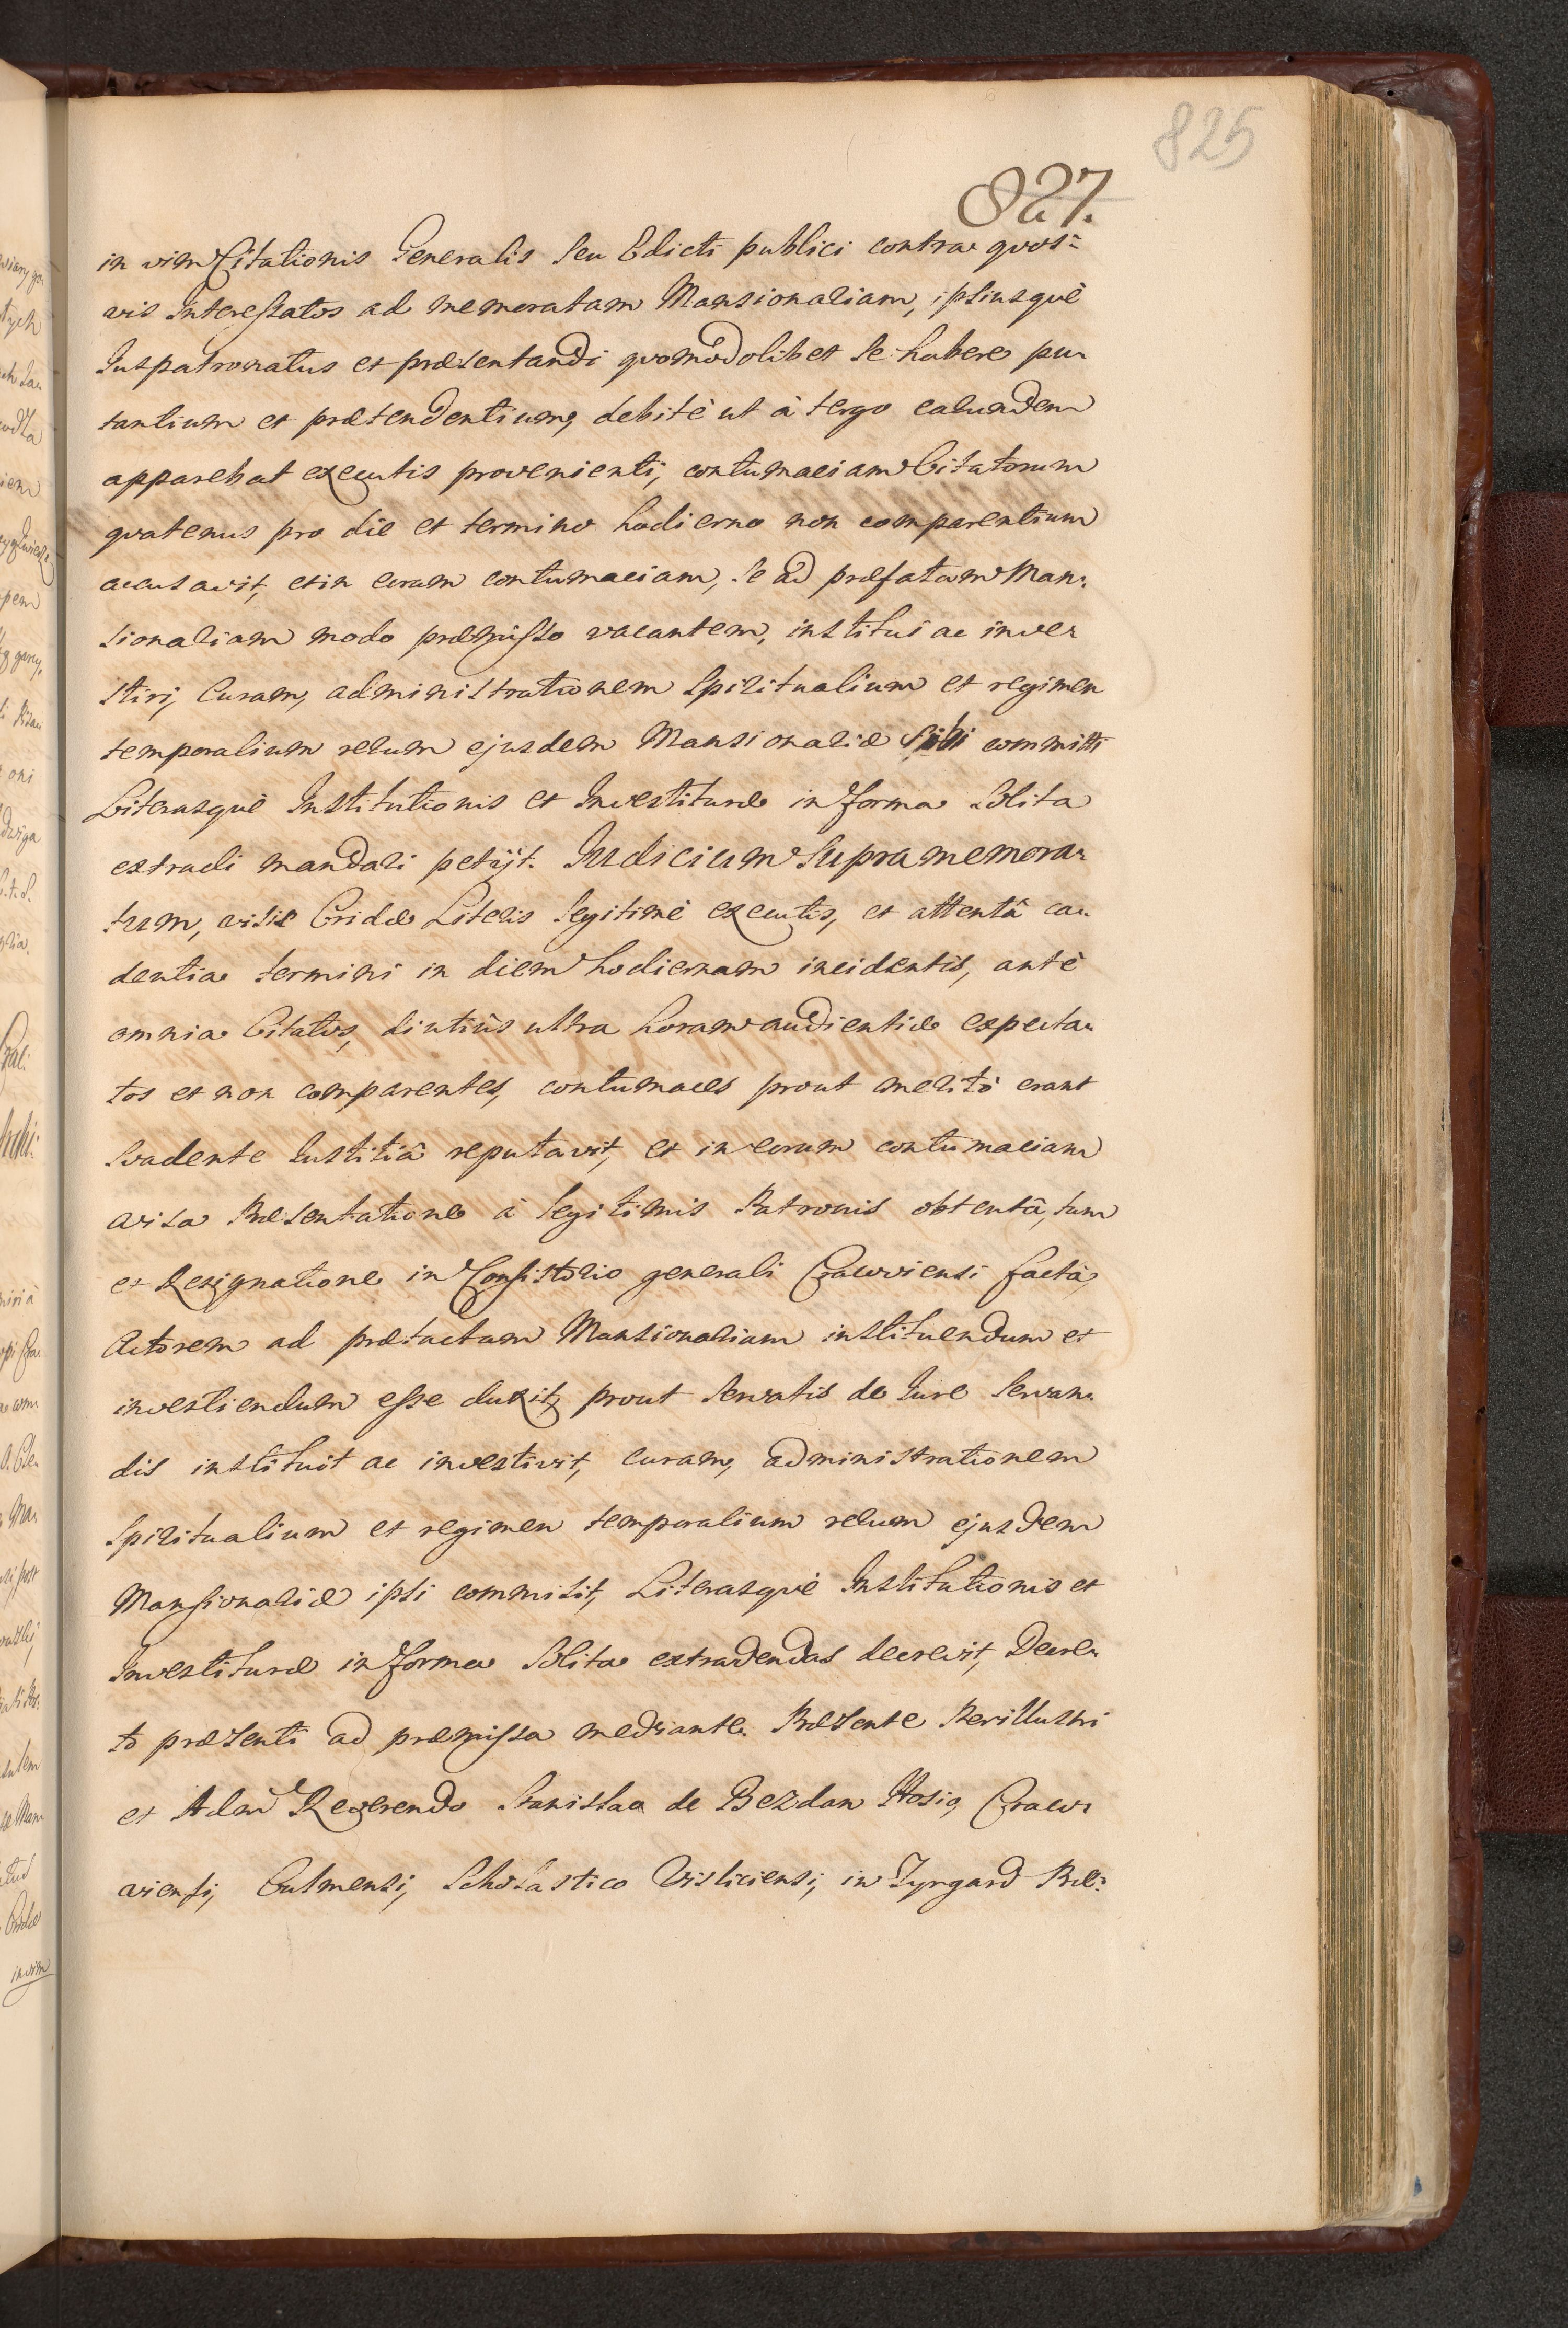 825
827.
in vim Citationis Generalis seu Edicti publici contra quos-
vis Interessatos ad memoratam Mansionariam, ipsiusque
Juspatronatus et præsentandi quomodolibet se habere pu-
tantium et prætendentium, debitè ut à tergo earundem
apparebat executis provenienti, contumaciam Citatorum
quatenus pro die et termino hodierno non comparentium
accusavit, et in eorum contumaciam, se ad præfatam Man-
sionariam modo præmisso vacantem, institui ac inve-
stiri, Curam, administrationem Spiritualium et regimen
temporalium rerum ejusdem Mansionariæ sibi committi
Literasquè Institutionis et Investituræ in forma solita
extradi mandari petijt. Judicium Supramemora-
tum, visis Cridæ Literis legitimè executis, et attentâ ca-
dentia termini in diem hodiernam incidentis, antè
omnia Citatos, diutiùs ultra horam audientiæ expecta-
tos et non comparentes, contumaces prout meritò erant
svadente Justitiâ reputavit, et in eorum contumaciam
visa Præsentatione à legitimis Patronis obtentâ, tum
et Resignatione in Consistorio generali Cracoviensi factâ,
Actorem ad prætactam Mansionariam instituendum et
investiendum esse duxit, prout servatis de Jure servan-
dis instituit ac investivit, curam, administrationem
Spiritualium et regimen temporalium rerum ejusdem
Mansionariæ ipsi commisit, Literasquè Institutionis et
Investituræ in forma solita extradendas decrevit, Decre-
to præsenti ad præmissa mediante. Præsente Perillustri
et Adm Reverendo Stanislao de Bezdan Hosio, Craco-
viensi, Culmensi, Scholastico Visliciensi, in Tyrgard Præ-